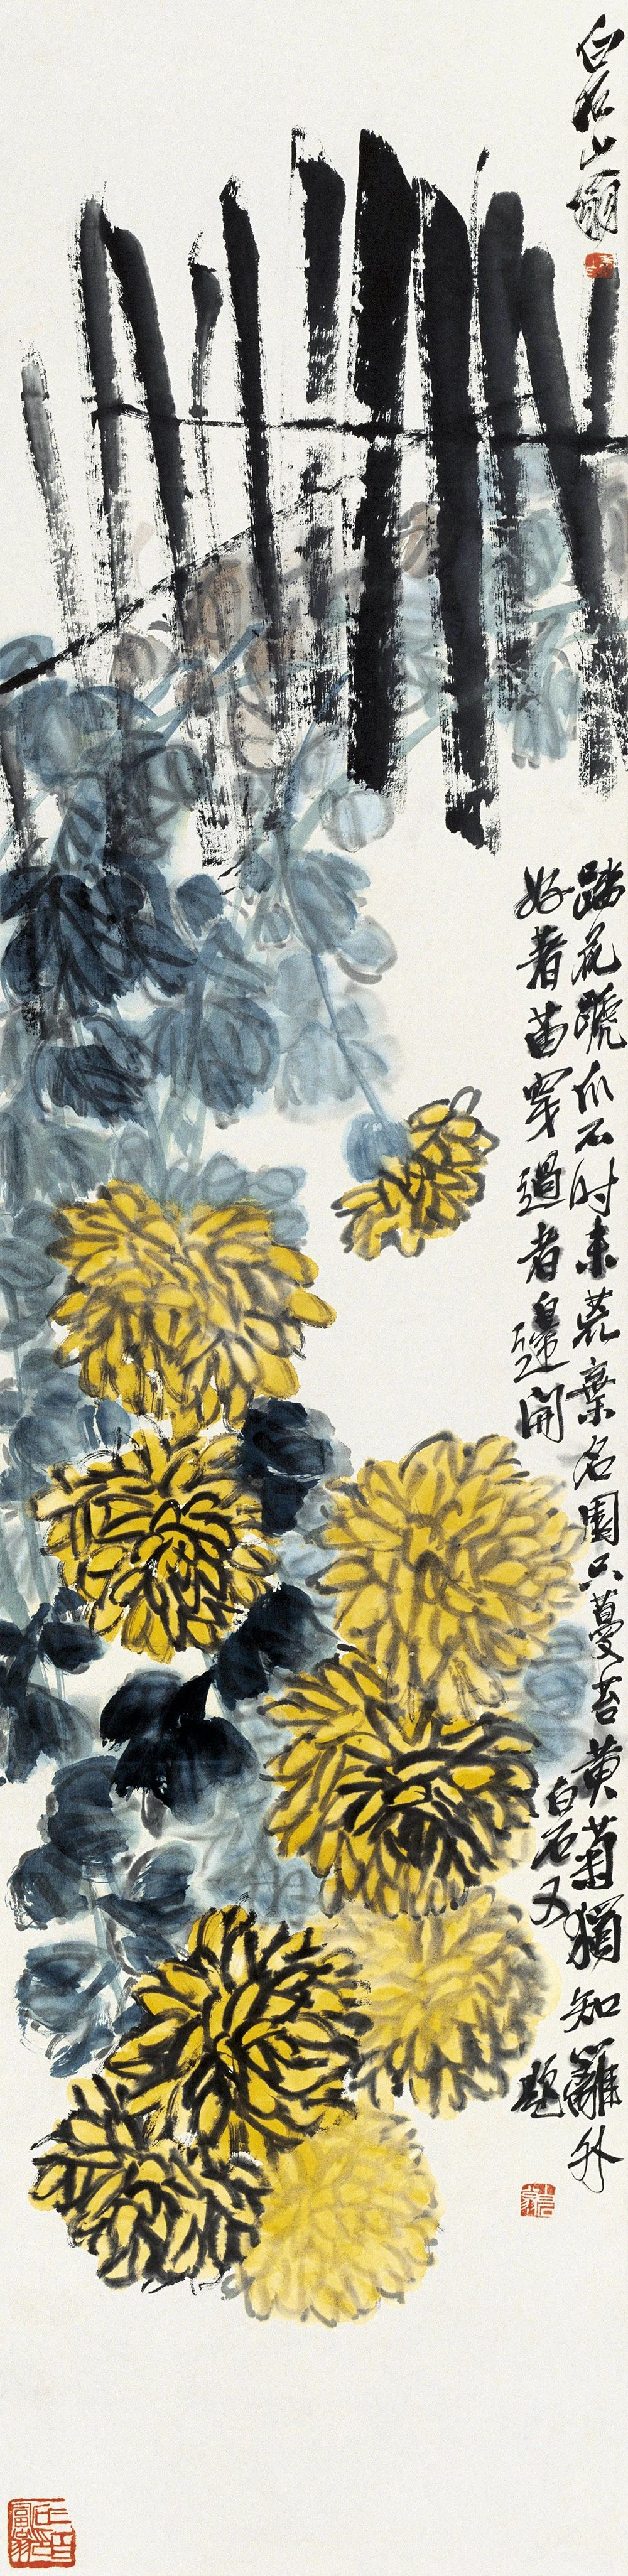 白石山翁
踏花蹄爪不时来荒弃名園只蔓苔黄菊犹知籬外
好着苗穿過者邊開
白石又題